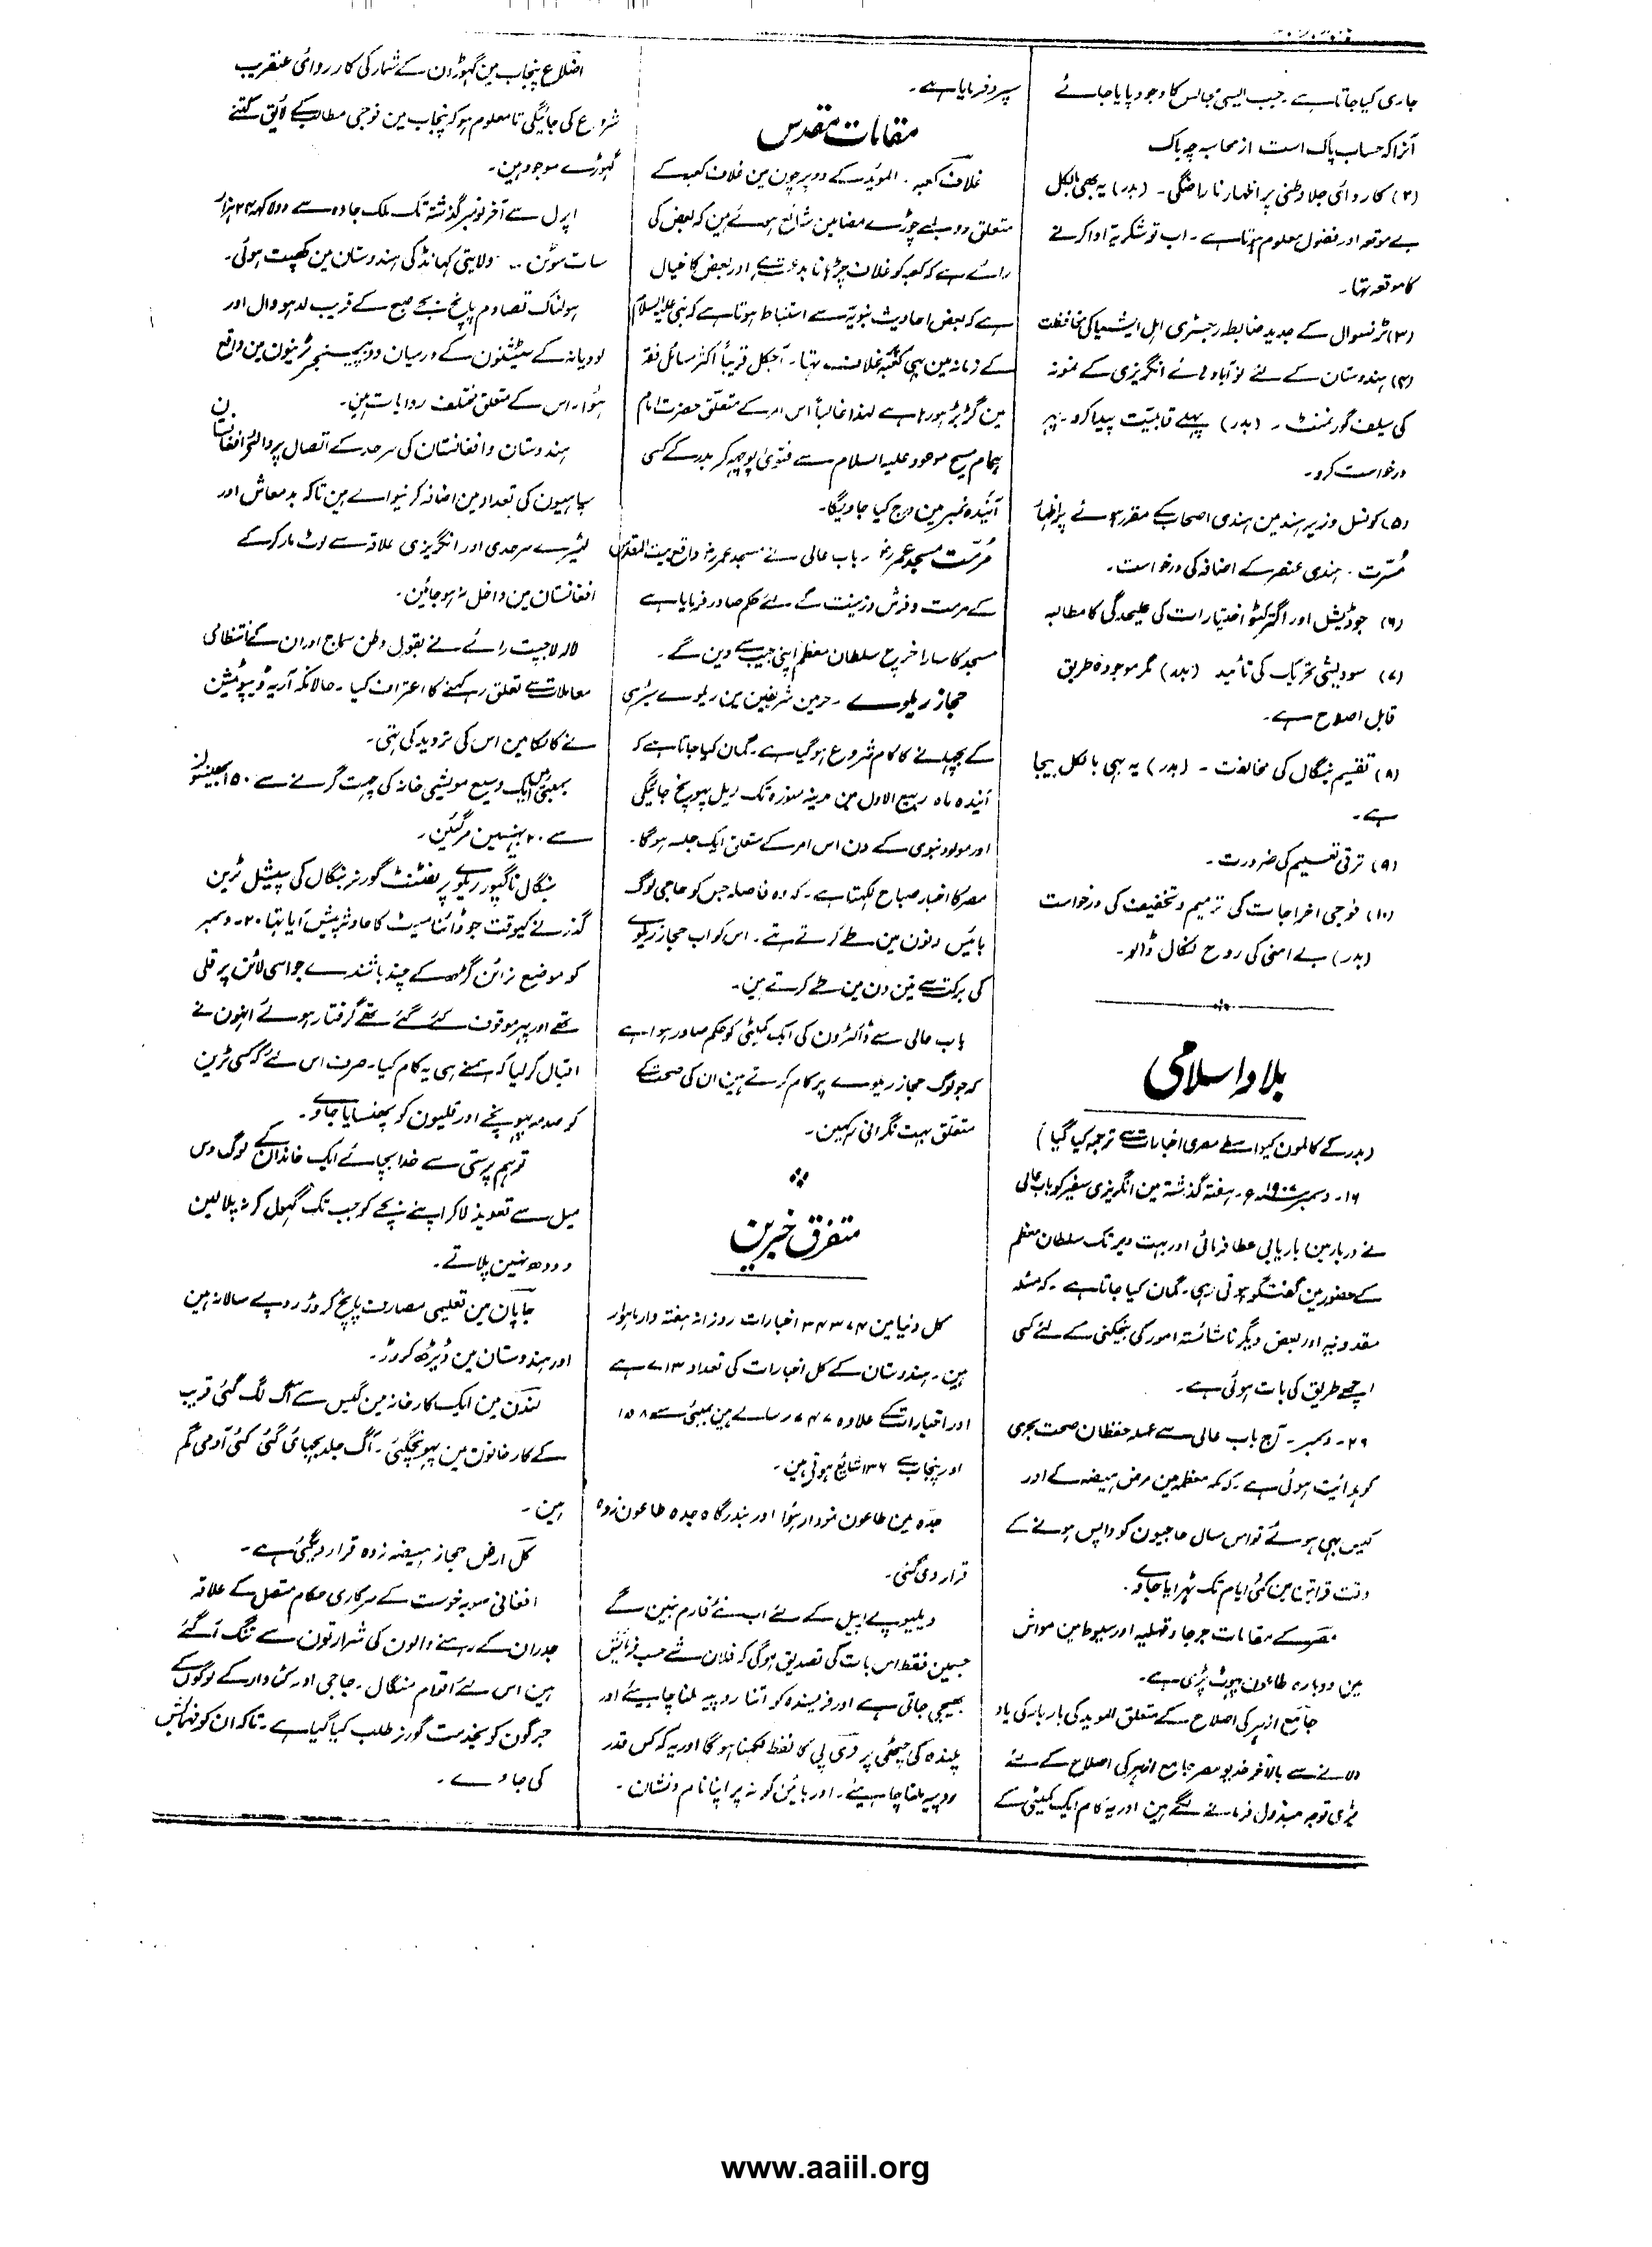 جاری کیا جاتا ہے۔ جب ایسی مجالس کا وجود پایا جائے
آنرا کہ حساب پاک است از محاسبہ چہ باک
(۲) کارروائی جلاوطنی پر اظہار ناراضگی۔ (بدر) یہ بھی بالکل
بے موقعہ اور فضول معلوم ہوتا ہے۔ اب تو شکریہ ادا کرنے
کا موقعہ تھا۔
(۳) ٹرنسوال کے جدید ضابطہ رجسٹری اہل ایشیا کی مخالفت
(۴) ہندوستان کے لئے نوآبادیہائے انگریزی کے نمونہ
کی سیلف گورنمنٹ۔ (بدر) پہلے قابلیت پیدا کرو۔ پہر
درخواست کرو۔
(۵) کونسل وزیر ہند مین ہندی اصحاب کے مقرر ہوئے پر اظہار
مسرّت۔ ہندی عنصر کے اضافہ کی درخواست۔
(۶) جوڈیشل اور اگزکٹو اختیارات کی علیحدگی کا مطالبہ
(۷) سودیشی تحریک کی تائید (بدر) مگر موجودہ طریق
قابل اصلاح ہے۔
(۸) تقسیم بنگال کی مخالفت۔ (بدر) یہ بہی بالکل بیجا
ہے۔
(۹) ترقی تعلیم کی ضرورت۔
(۱۰) فوجی اخراجات کی ترمیم و تخفیف کی درخواست
(بدر) بے امنی کی روح نکال ڈالو۔
بلاد اسلامی
(بدر کے کالمون کیواسطے مصری اخبارات سے ترجمہ کیا گیا)
۱۶۔ دسمبر ۱۹۰۷ء۔ ہفتہ گذشتہ مین انگریزی سفیر کو باب عالی
نے دربار مین باریابی عطا فرمائی اور بہت دیر تک سلطان معظم
کے حضور مین گفتگو ہوتی رہی۔ گمان کیا جاتا ہے۔ کہ مسئلہ
مقدونیہ اور بعض دیگر ناشائستہ امور کی بیخکنی کے لئے کسی
اچھے طریق کی بات ہوئی ہے۔
۲۹۔ دسمبر۔ آج باب عالی سے عملہ حفظان صحت بحری
کو ہدائیت ہوئی ہے۔ کہ مکہ معظمہ مین مرض ہیضہ کے اور
کیس بہی ہوئے تو اس سال حاجیون کو واپس ہونے کے
وقت قرانتین مین کئی ایام تک ٹہرایا جاوے۔
مصر کے مقامات جرجا و قہلیہ اور سیوط مین مواش
مین دوبارہ طاعون پہوٹ پڑی ہے۔
جامع ازہر کی اصلاح کے متعلق الموید کی بار بار کی یاد
دلانے سے بالآخر خدیو مصر جامع ازہر کی اصلاح کے لئے
بڑی توجہ مبذول فرمانے لگے ہین اور یہ کام ایک کمیٹی کے
سپرد فرمایا ہے۔
مقامات مقدس
غلاف کعبہ۔ الموید کے دو پرچون مین غلاف کعبہ کے
متعلق دو لمبے چوڑے مضامین شائع ہوئے ہین کہ بعض کی
رائے ہے کہ کعبہ کو غلاف چڑہانا بدعت ہے اور بعض کا خیال
ہے کہ بعض احادیث نبویہ سے استنباط ہوتا ہے کہ نبی علیہ السلام
کے زمانہ مین بہی کعبہ پر غلاف تہا۔ آجکل قریباً اکثر مسائل فقہ
مین گڑبڑ ہو رہا ہے لہذا غالباً اس امر کے متعلق حضرت امام
ہمام مسیح موعود علیہ السلام سے فتویٰ پوچھ کر بدر کے کسی
آئیندہ نمبر مین درج کیا جاویگا۔
مرمّت مسجد عمرؓ۔ باب عالی نے مسجد عمرؓ واقع بیت المقدس
کے مرمت و فرش و زینت کے لئے حکم صادر فرمایا ہے
مسجد کا سارا خرچ سلطان معظم اپنی جیب سے دین گے۔
حجاز ریلوے۔ حرمین شریفین مین ریلوے پٹری
کے بچہانے کا کام شروع ہو گیا ہے۔ گمان کیا جاتا ہے کہ
آئیندہ ماہ ربیع الاول مین مدینہ منورہ تک ریل پہونچ جائیگی
اور مولود نبوی کے دن اس امر کے متعلق ایک جلسہ ہوگا۔
مصر کا اخبار صباح لکہتا ہے۔ کہ وہ فاصلہ جس کو حاجی لوگ
بائیس دنون مین طے کرتے تھے۔ اس کو اب حجاز ریلوے
کی برکت سے تین دن مین طے کرتے ہین۔
باب عالی سے ڈاکٹرون کی ایک کمیٹی کو حکم صادر ہوا ہے
کہ جو لوگ حجاز ریلوے پر کام کرتے ہین ان کی صحت کے
متعلق بہت نگرانی رکہین۔
متفرق خبرین
کل دنیا مین ۳۴۳۷۴ اخبارات روزانہ ہفتہ وار ماہوار
ہین۔ ہندوستان کے کل اخبارات کی تعداد ۷۱۳ ہے
اور اخبارات کے علاوہ ۷۴۷ رسالے ہین بمبئی سے ۱۵۸
اور پنجاب سے ۱۳۶ شائع ہوتی ہین۔
جدہ مین طاعون نمودار ہوا اور بندرگاہ جدہ طاعون زدہ
قرار دی گئی۔
ویلیوپے ایبل کے لئے اب نئے فارم بنین گے
جسمین فقط اس بات کی تصدیق ہوگی کہ فلان شے حسب فرمائش
بھیجی جاتی ہے اور فرستندہ کو اتنا روپیہ ملنا چاہیئے اور
پلندہ کی چٹھی پر وی پی کا لفظ لکھنا ہوگا اور یہ کہ کس قدر
روپیہ ملنا چاہیئے۔ اور بائین کونہ پر اپنا نام و نشان۔
اضلاع پنجاب مین گہوڑون کے شمار کی کارروائی عنقریب
شروع کی جائیگی تا معلوم ہو کہ پنجاب مین فوجی مطالب کے لائق کتنے
گہوڑے موجود ہین۔
اپرل سے آخر نومبر گذشتہ تک ملک جاوہ سے دو لاکھ ۲۴ ہزار
سات سو ٹن ولایتی کہانڈ کی ہندوستان مین کہپت ہوئی۔
ہولناک تصادم پانچ بجے صبح کے قریب لدہووال اور
لودیانہ کے سٹیشنون کے درمیان دو پیسنجر ٹرینون مین واقع
ہوا۔ اس کے متعلق مختلف روایات ہین۔
ہندوستان و افغانستان کی سرحد کے اتصال پر والئے افغانستان
سپاہیون کی تعداد مین اضافہ کرنیوالے ہین تاکہ بدمعاش اور
لٹیرے سرحدی اور انگریزی علاقہ سے لوٹ مار کر کے
افغانستان مین داخل نہ ہو جائین۔
لالہ لاجپت رائے نے بقول وطن سماج اور ان کے انتظامی
معاملات سے تعلق رکہنے کا اعتراف کیا۔ حالانکہ آریہ ڈیپوٹیشن
نے کالکا مین اس کی تردید کی تہی۔
بمبئی مین ایک وسیع مویشی خانہ کی چہت گرنے سے ۱۵۰ بھینسون
سے ۲۰ بہینسین مر گئین۔
بنگال ناگپور ریلوے پر لفٹنٹ گورنر بنگال کی سپیشل ٹرین
گذرنے کیوقت جو ڈائنامیٹ کا حادثہ پیش آیا تہا ۲۰۔ دسمبر
کو موضیع نرائن گڑھ کے چند باشندے جو اسی لائن پر قلی
تھے اور پہر موقوف کئے گئے تھے گرفتار ہوئے انہون نے
اقبال کر لیا کہ ہمنے ہی یہ کام کیا۔ صرف اس لئے کہ کسی ٹرین
کو صدمہ پہونچے اور قلیون کو پھنسایا جاوے۔
توہم پرستی سے خدا بچائے ایک خاندان کے لوگ دس
میل سے تعویذ لا کر اپنے بچے کو جب تک گہول کر نہ پلا لین
دودھ نہین پلاتے۔
جاپان مین تعلیمی مصارف پانچ کروڑ روپے سالانہ ہین
اور ہندوستان مین ڈیڑھ کروڑ۔
لندن مین ایک کارخانہ مین گیس سے آگ لگ گئی قریب
کے کارخانون مین پہونچگئی۔ آگ جلد بجہائی گئی کئی آدمی گم
ہین۔
کل ارض حجاز ہیضہ زدہ قرار دیگئی ہے۔
افغانی صوبہ خوست کے سرکاری حکام متصل کے علاقہ
جدران کے رہنے والون کی شرارتون سے تنگ آ گئے
ہین اس لئے اقوام منگال۔ جاجی اور کنوار کے لوگون کے
جرگون کو بخدمت گورنر طلب کیا گیا ہے۔ تاکہ ان کو فہمائش
کی جاوے۔
www.aaiil.org